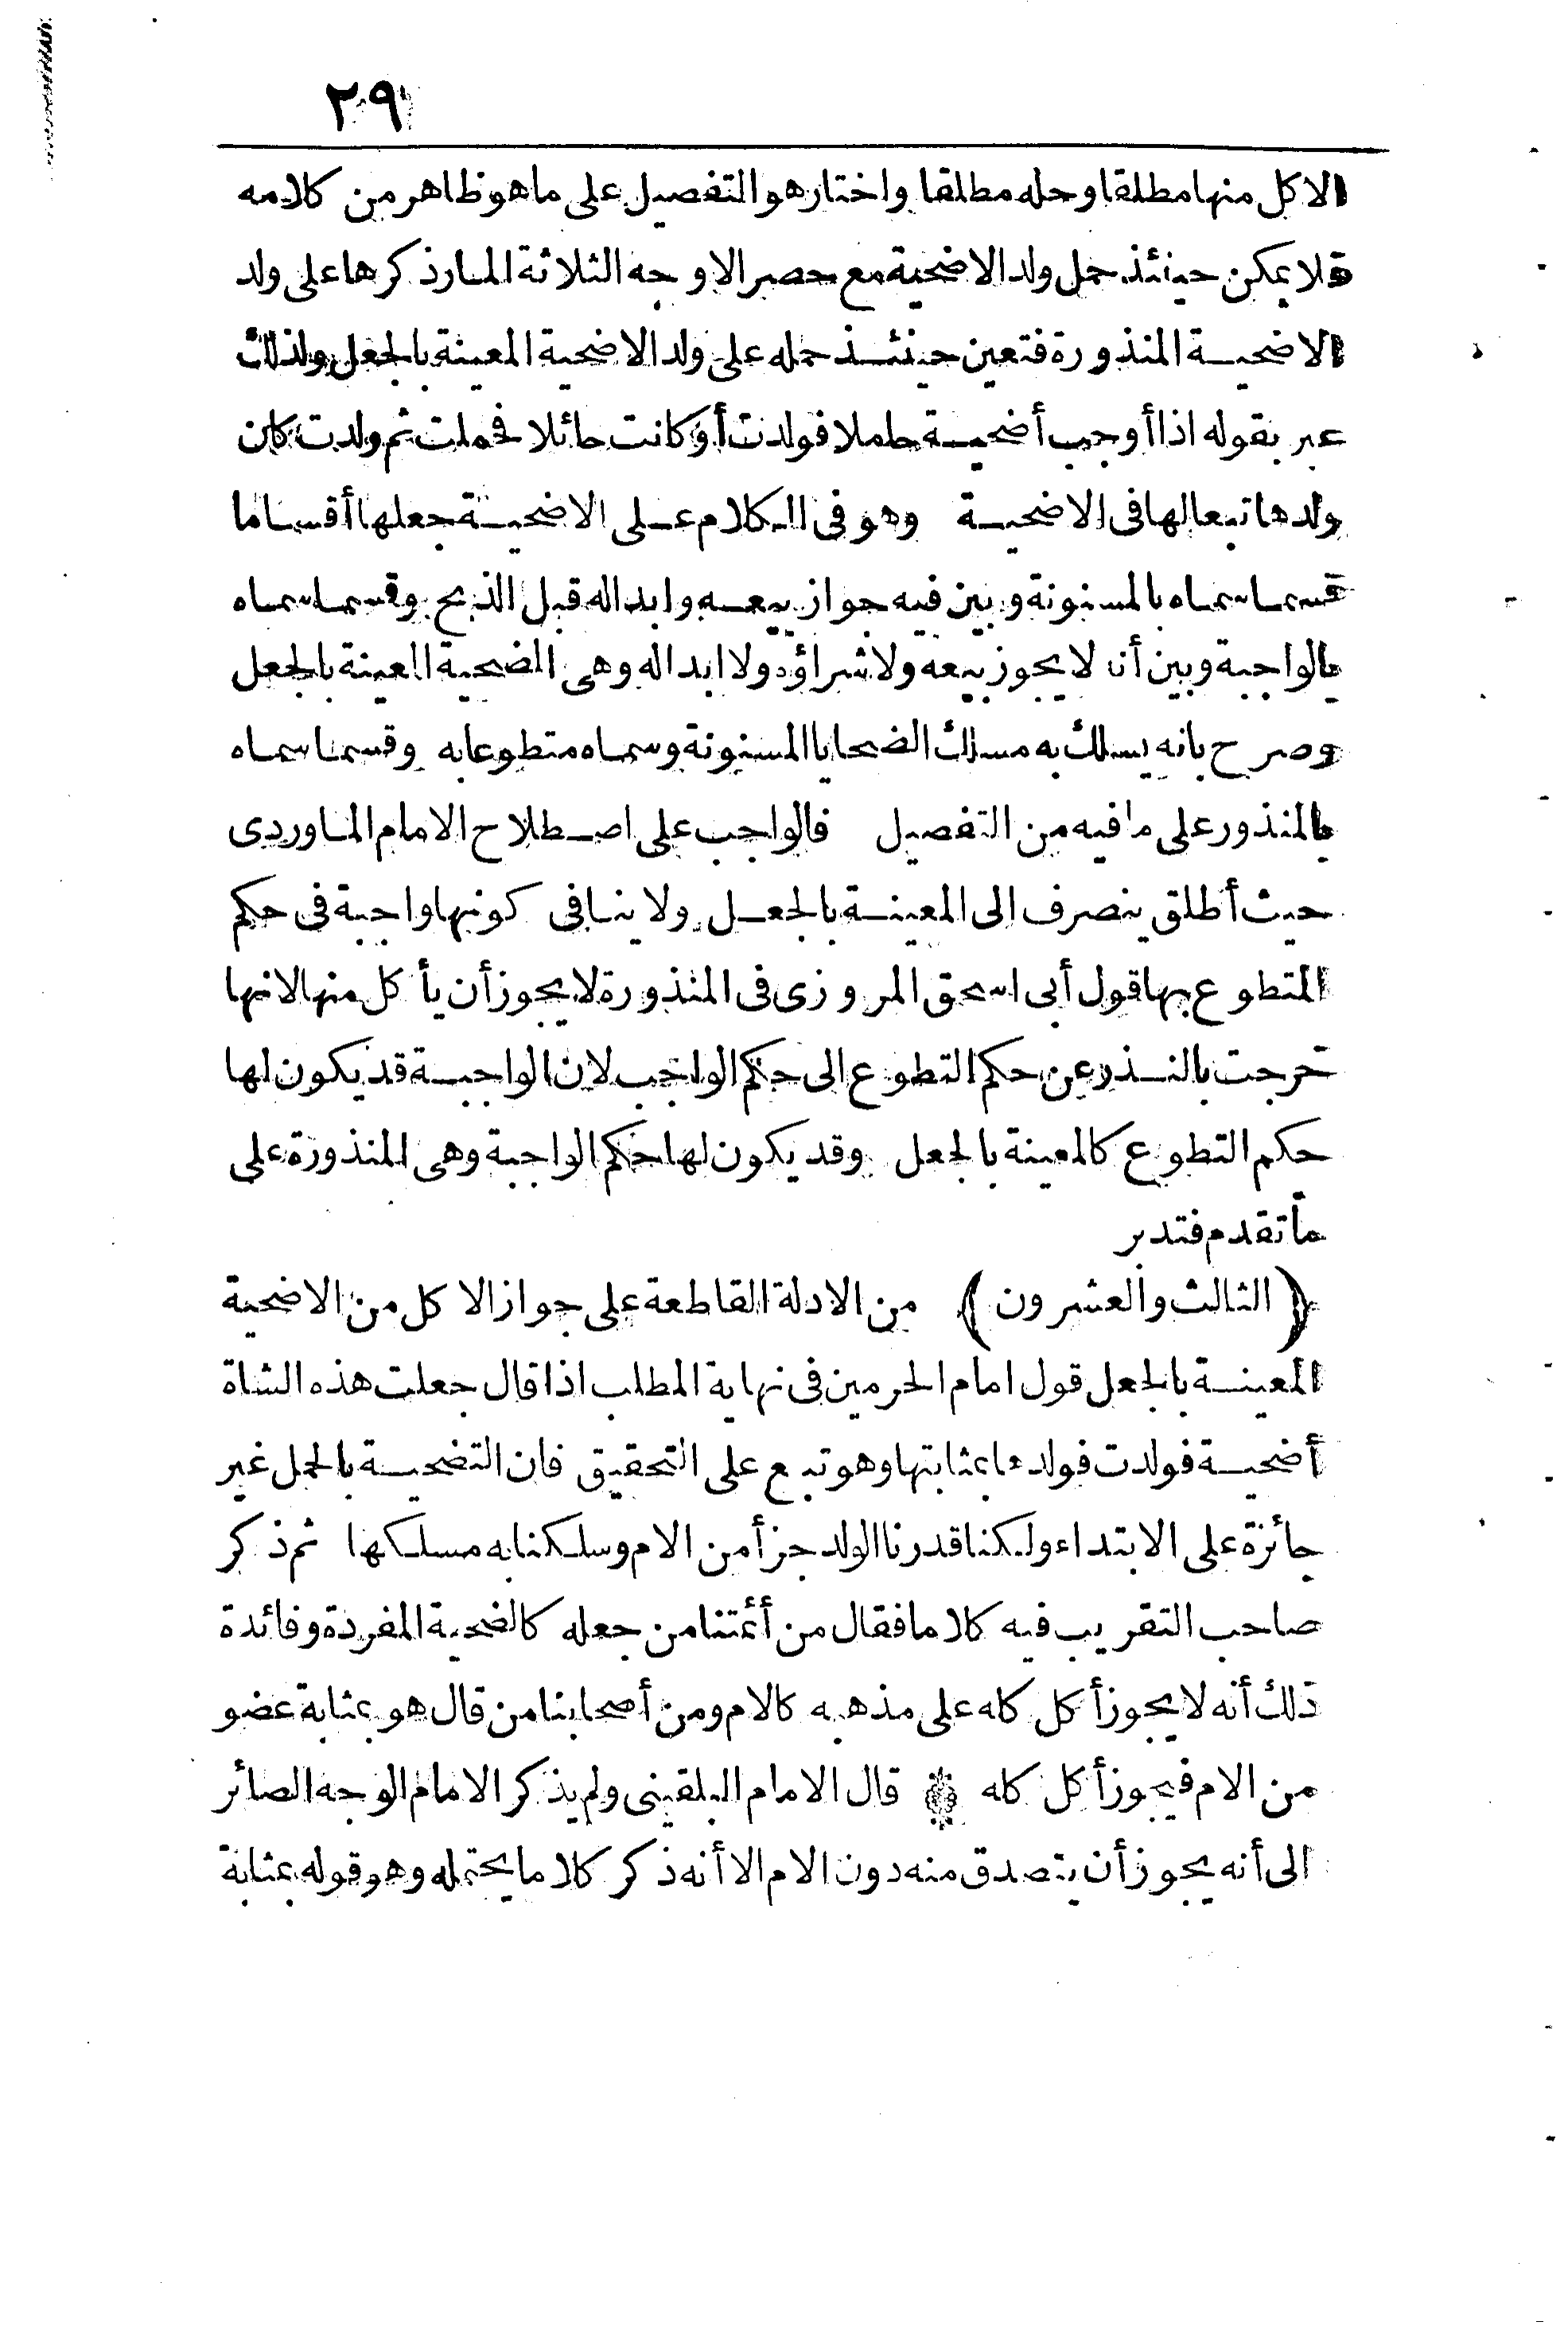 ٢٩
الاكل منها مطلقا وحله مطلقا واختار هو التفصيل على ما هو ظاهر من كلامه
فلا يمكن حينئذ حمل ولد الاضحية مع حصر الاوجه الثلاثة المار ذكرها على ولد
الاضحية المنذورة فتعين حينئذ حمله على ولد الاضحية المعينة بالجعل ولذلك
عبر بقوله اذا أوجب أضحية حاملا فولدت أو كانت حائلا فحملت ثم ولدت كان
ولدها تبعا لها فى الاضحية وهو فى الكلام على الاضحية جعلها أقساما
قسما سماه بالمسنونة وبين فيه جواز بيعه وابداله قبل الذبح وقسما سماه
بالواجبة وبين أنه لا يجوز بيعه ولا شراؤه ولا ابداله وهى الضحية المعينة بالجعل
وصرح بانه يسلك به مسلك الضحايا المسنونة وسماه متطوعا به وقسما سماه
بالمنذور على ما فيه من التفصيل فالواجب على اصطلاح الامام الماوردى
حيث أطلق ينصرف الى المعينة بالجعل ولا ينافى كونها واجبة فى حكم
المتطوع بها قول أبى اسحق المروزى فى المنذورة لا يجوز أن يأكل منها لانها
خرجت بالنذر عن حكم التطوع الى حكم الواجب لان الواجبة قد يكون لها
حكم التطوع كالمعينة بالجعل وقد يكون لها حكم الواجبة وهى المنذورة على
ما تقدم فتدبر
﴿الثالث والعشرون﴾ من الادلة القاطعة على جواز الاكل من الاضحية
المعينة بالجعل قول امام الحرمين فى نهاية المطلب اذا قال جعلت هذه الشاة
أضحية فولدت فولدها بمثابتها وهو تبع على التحقيق فان التضحية بالحمل غير
جائزة على الابتداء ولكنا قدرنا الولد جزأ من الام وسلكنا به مسلكها ثم ذكر
صاحب التقريب فيه كلاما فقال من أئمتنا من جعله كالضحية المفردة وفائدة
ذلك أنه لا يجوز أكل كله على مذهبه كالام ومن أصحابنا من قال هو بمثابة عضو
من الام فيجوز أكل كله * قال الامام البلقينى ولم يذكر الامام الوجه الصائر
الى أنه يجوز أن يتصدق منه دون الام الا أنه ذكر كلاما يحتمله وهو قوله بمثابة